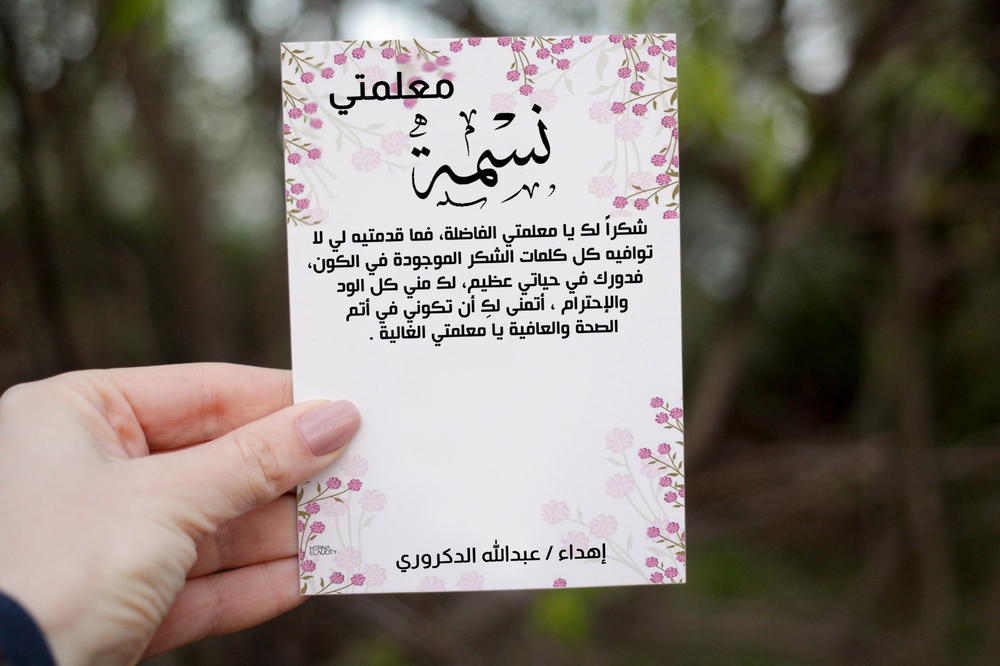 معلمتي
نسمة
شكراً لك يا معلمتي الفاضلة، فما قدمتيه لي لا
توافيه كل كلمات الشكر الموجودة في الكون،
فدورك في حياتي عظيم، لك مني كل الود
والإحترام ، أتمنى لكِ أن تكوني في أتم
الصحة والعافية يا معلمتي الغالية .
إهداء / عبدالله الدكروري
MERNA
ELADOTY